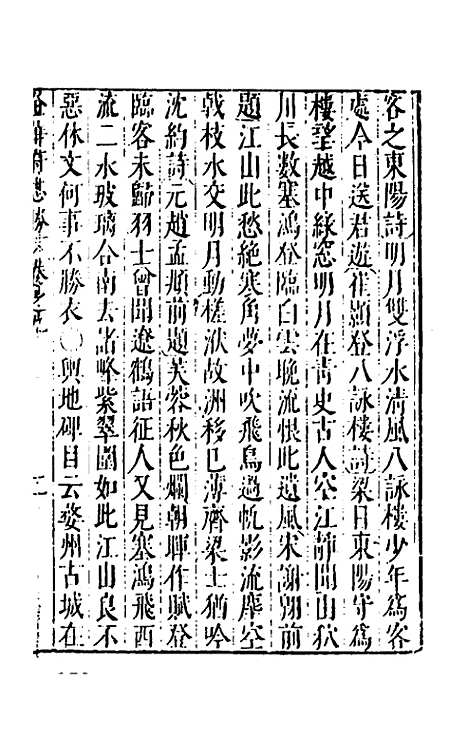 客之東陽詩明月雙浮水清風八詠樓少年爲客
處今日送君遊崔顥登八詠樓詩梁日東陽守爲
樓望越中綠窓明月在靑史古人空江靜聞山狖
川長數塞鴻登臨白雲晚流恨此遺風宋謝翱前
題江山此愁絶寒角夢中吹飛鳥過帆影流塵空
戟枝水交明月動槎洑故洲移已薄齊梁士猶吟
沈約詩元趙孟頫前題芙蓉秋色爛朝暉作賦登
臨客未歸羽士曾聞遼鶴語征人又見塞鴻飛西
流二水玻璃合南去諸峰紫翠圍如此江山良不
惡休文何事不勝衣〇輿地碑目云婺州古城在